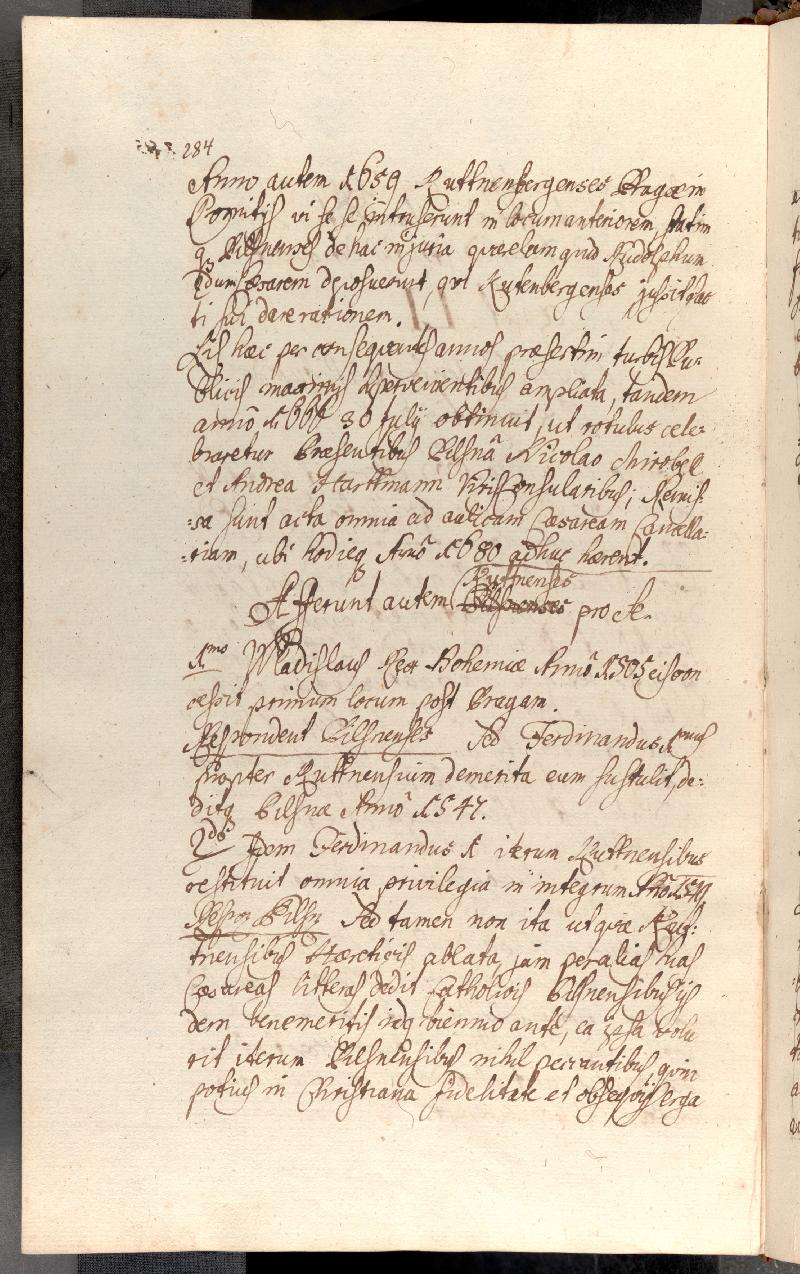 284
Anno autem 1659 Kuttnenbergenses Pragæ in
Comitijs vi se se intruserunt in locum anteriorem, statim
qꝫ Pilsnenses de hac injuria quærelam apud Rudolphum
2dum Cæsarem deposuerunt, qui Kutenbergenses jussit fac
ti sui dare rationem.
Lis hæc per consequentes annos præsertim turbis Pu-
blicis maximis supervenientibus ampliata, tandem
anno 1666 30 Julij obtinuit, ut rotulus cele-
braretur Præsentibus Pilsna Nicolao
et Andrea Hartmann Viris Consularibus; Remis-
sa sunt acta omnia ad aulicam Cæsaream Cancella-
riam, ubi hodieqꝫ Anno 1680 adhuc hærent.
Kuttnenses
Afferunt autem Pilsnenses pro se.
1mo Wladislaus Rex Bohemiæ Anno 1505 eis con
cessit primum locum post Pragam.
Respondent Pilsnenses Sed Ferdinandus 1mus
propter Kuttnensium demerita eum sustulit, de-
ditqꝫ Pilsnæ Anno 1547.
2do Idem Ferdinandus 1 iterum Kuttnensibus
restituit omnia privilegia in integrum Anno 1549
Respon. Pilsn Sed tamen non ita ut quæ Kutt-
nensibus Hæreticis ablata, jam per alias suas
Cæsareas litteras dedit Catholicis Pilsnensibus ijs
dem benemeritis idqꝫ biennio ante, ea ipsa volu
rit iterum Pilsnensibus nihil peccantibus, quin
potius in Christiana fidelitate et obsequijs erga